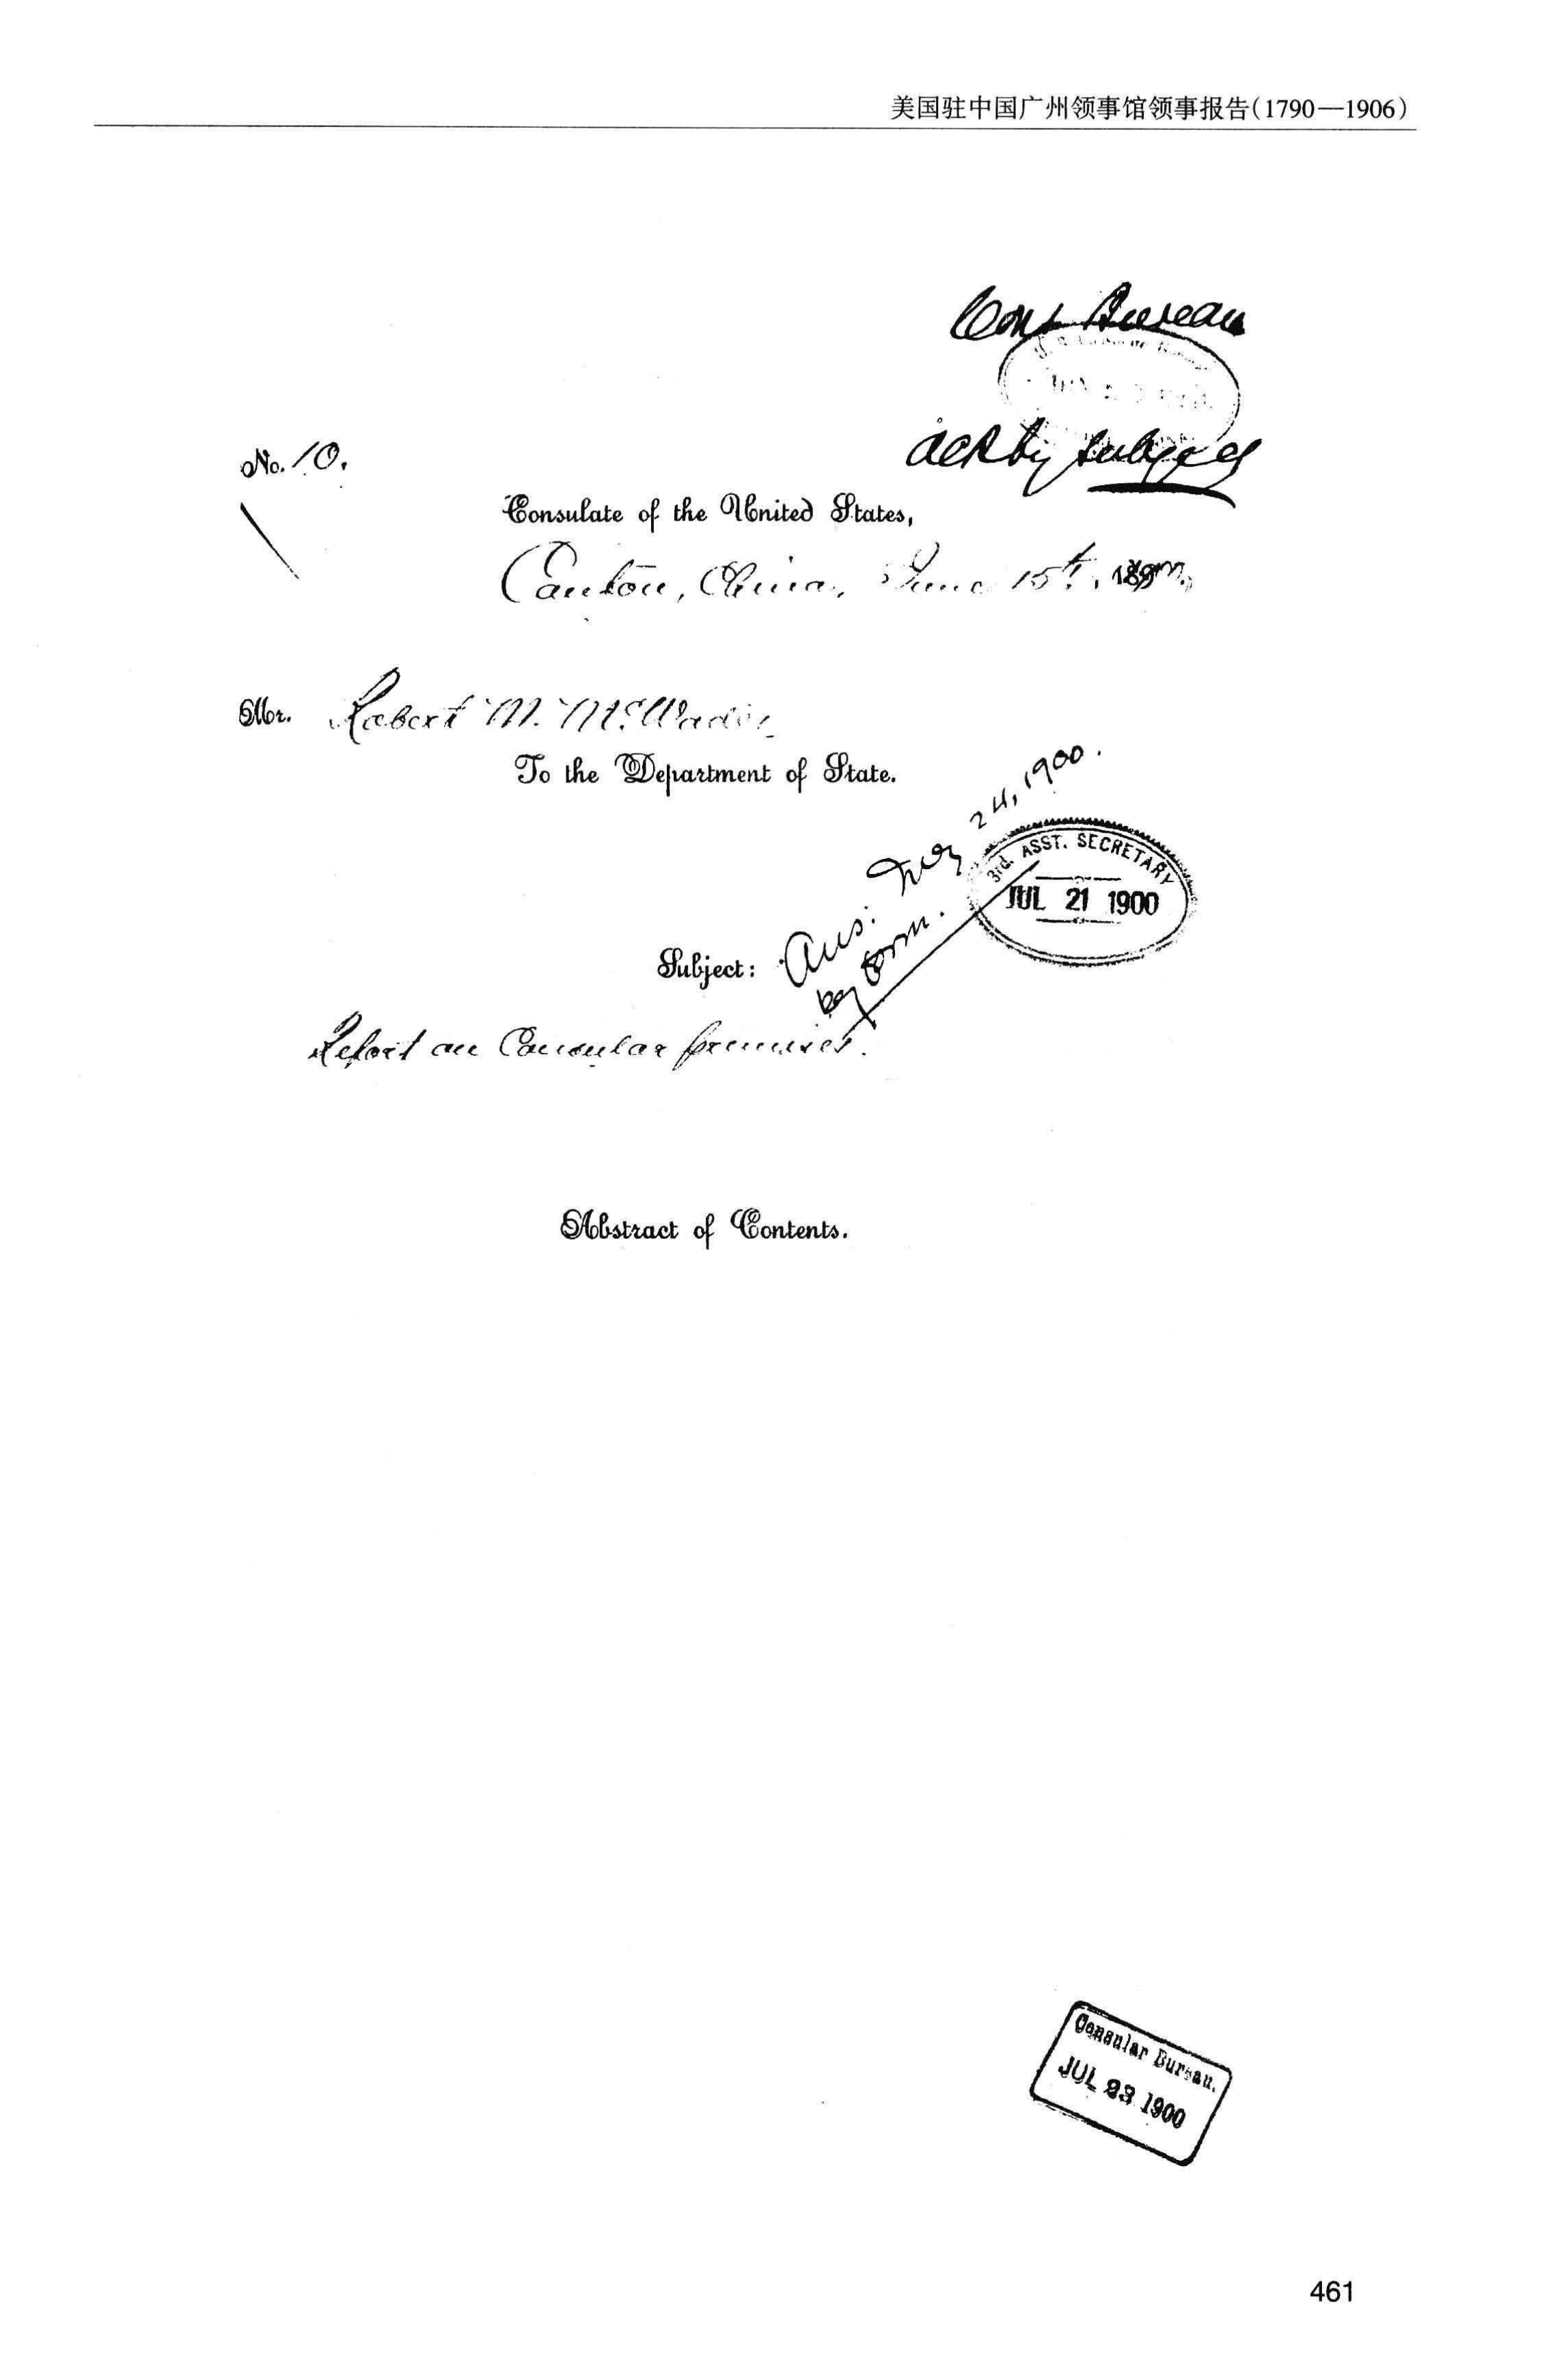 美国驻中国广州领事馆领事报告(1790—1906)
Cons Bureau
No. 10.
ack by subject
Consulate of the United States,
Canton, China, June 15th, 1900.
Mr. Robert M. McWade,
To the Department of State.
24, 1900.
3rd. ASST. SECRETARY
JUL 21 1900
Subject: Ans.
by form.
Report on Consular premises.
Abstract of Contents.
Consular Bureau.
JUL 23 1900
461